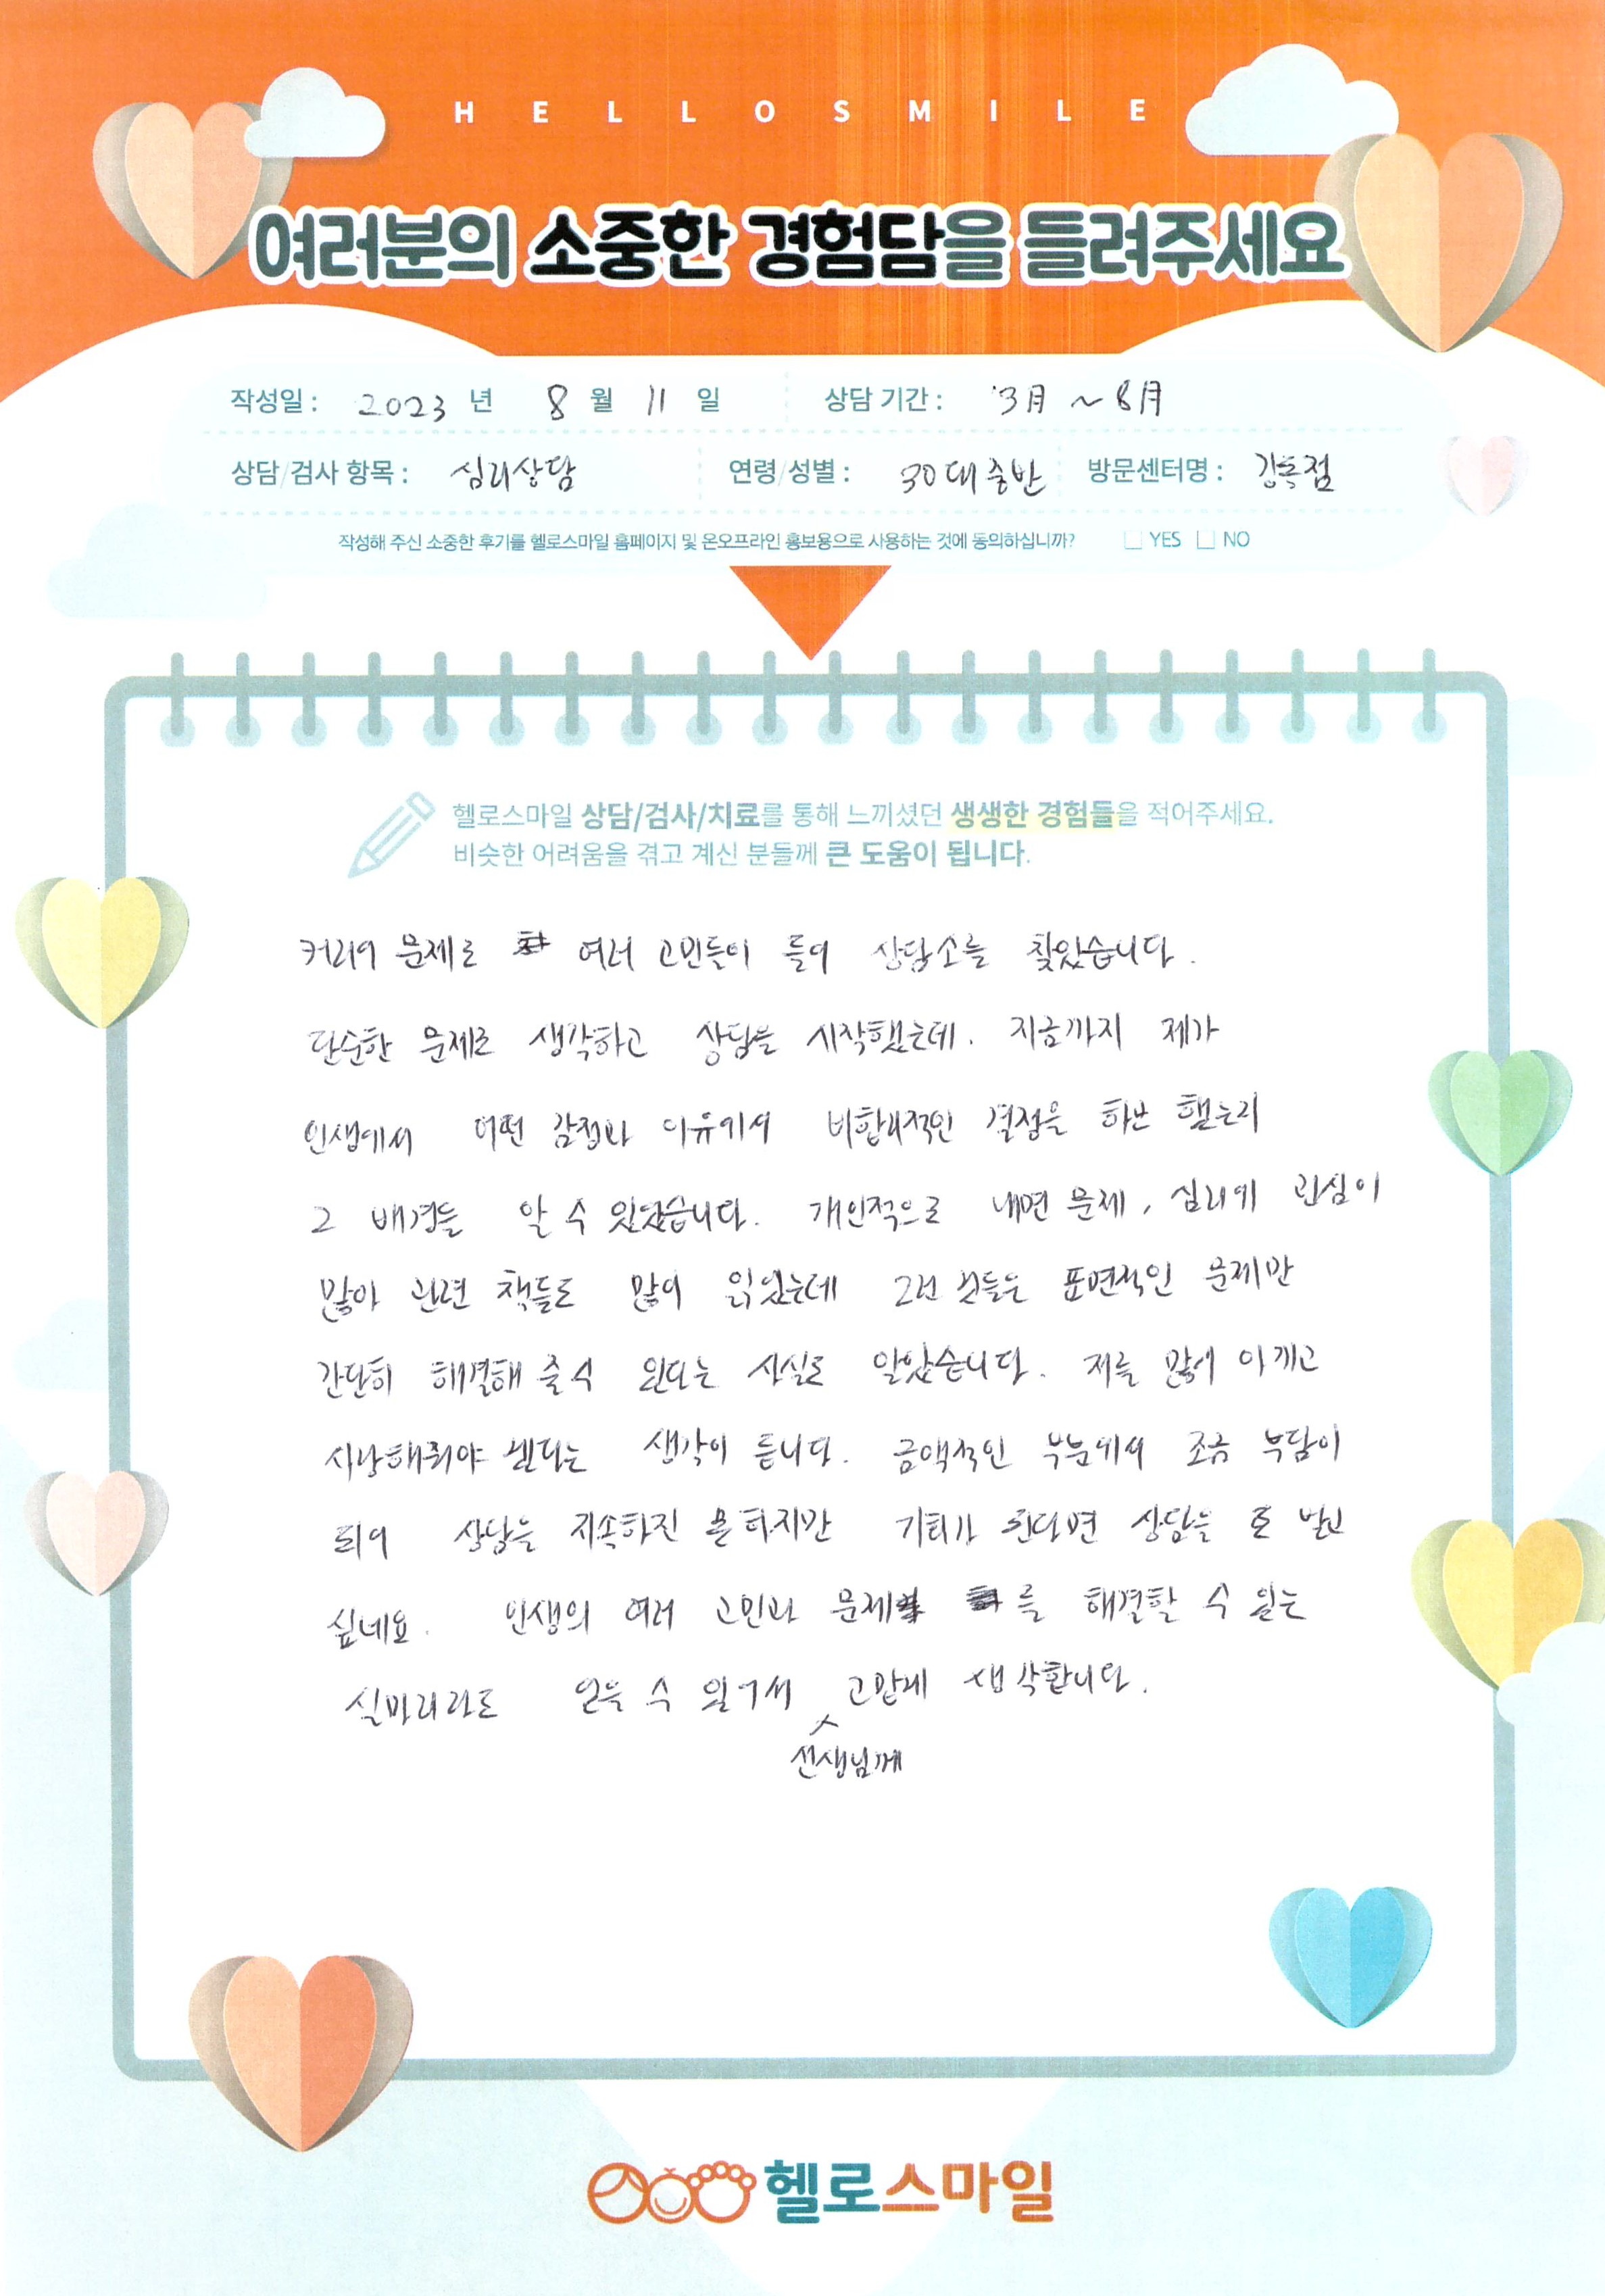 HELLOSMILE
여러분의 소중한 경험담을 들려주세요
작성일 : 2023 년 8 월 11 일 상담 기간 : '3月 ~ 8月
상담/검사 항목 : 심리상담 연령/성별 : 30대 중반 방문센터명 : 강동점
작성해 주신 소중한 후기를 헬로스마일 홈페이지 및 온오프라인 홍보용으로 사용하는 것에 동의하십니까? YES NO
헬로스마일 상담/검사/치료를 통해 느끼셨던 생생한 경험들을 적어주세요.
비슷한 어려움을 겪고 계신 분들께 큰 도움이 됩니다.
커리어 문제로 여러 고민들이 들어 상담소를 찾았습니다.
단순한 문제로 생각하고 상담을 시작했는데. 지금까지 제가
인생에서 어떤 감정과 이유에서 비합리적인 결정을 하는 했는지
그 배경들 알 수 있었습니다. 개인적으로 내면 문제, 심리에 관심이
많아 관련 책들도 많이 읽었는데 그런 것들은 표면적인 문제만
간단히 해결해 줄 수 있다는 사실도 알았습니다. 저를 많이 아끼고
사랑해줘야 겠다는 생각이 듭니다. 금액적인 부분에서 조금 부담이
되어 상담을 지속하진 못하지만 기회가 된다면 상담을 또 받고
싶네요. 인생의 여러 고민과 문제를 해결할 수 있는
실마리라도 얻을 수 있어서 선생님께 고맙게 생각합니다.
헬로스마일